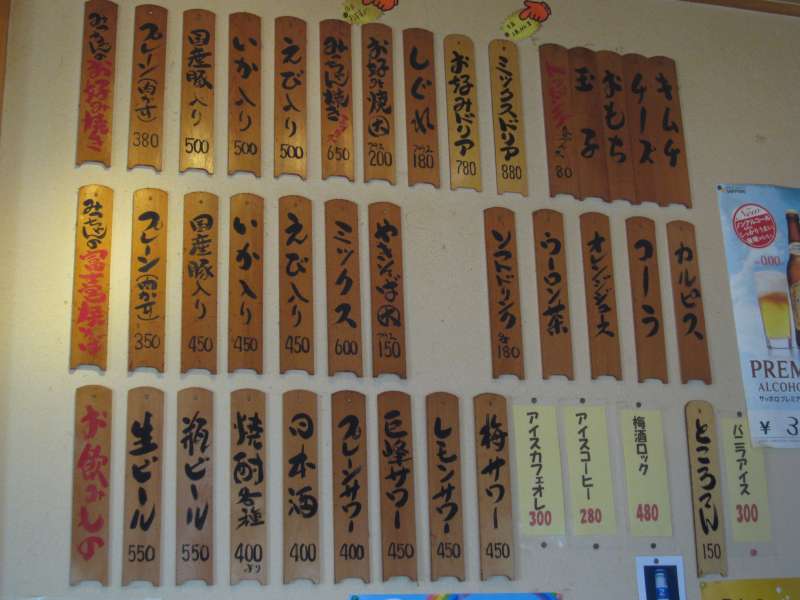 みっちゃんのお好み焼き
プレーン(肉かす) 380
国産豚入り 500
いか入り 500
えび入り 500
みっちゃん焼き 650
お好み焼 大 プラス 200
しぐれ プラス 180
お好みドリア 780
ミックスドリア 880
トッピング 各 80
玉子
おもち
チーズ
キムチ
みっちゃんの富士宮焼そば
プレーン(肉かす) 350
国産豚入り 450
いか入り 450
えび入り 450
ミックス 600
やきそば 大 プラス 150
ソフトドリンク 各 180
ウーロン茶
オレンジジュース
コーラ
カルピス
お飲みもの
生ビール 550
瓶ビール 550
焼酎各種 400より
日本酒 400
プレーンサワー 400
巨峰サワー 450
レモンサワー 450
梅サワー 450
アイスカフェオレ 300
アイスコーヒー 280
梅酒ロック 480
ところてん 150
バニラアイス 300
SAPPORO
ノンアルコール
0.00
PREM
ALCOHO
サッポロプレミア
¥ 3